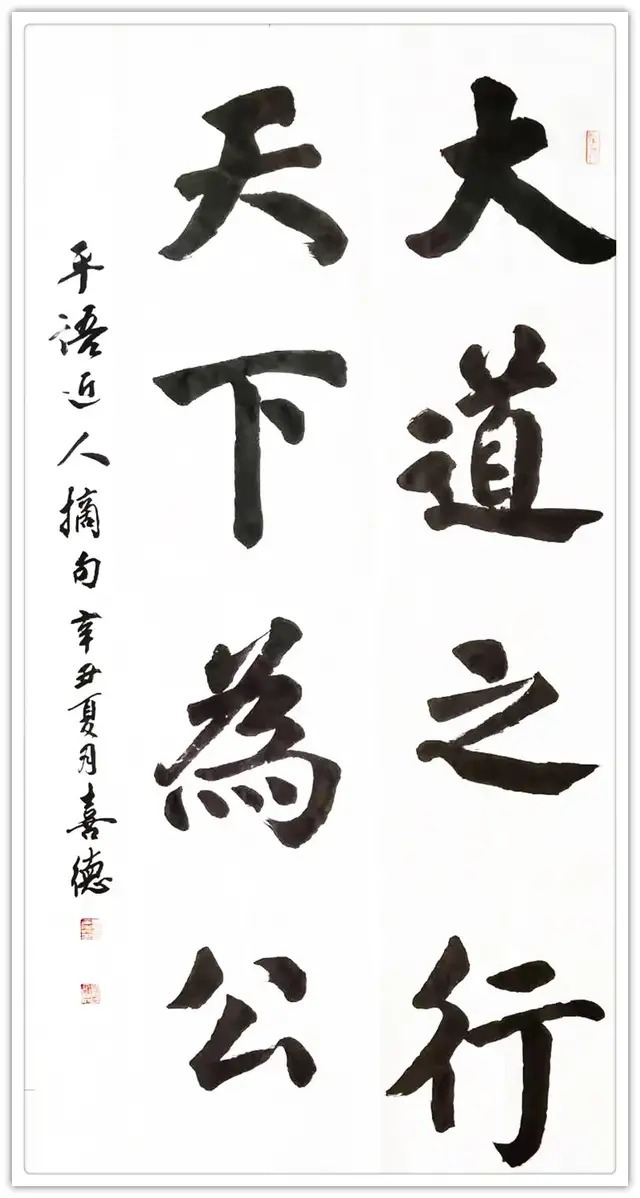 大道之行
天下為公
平语近人摘句辛丑夏月喜德